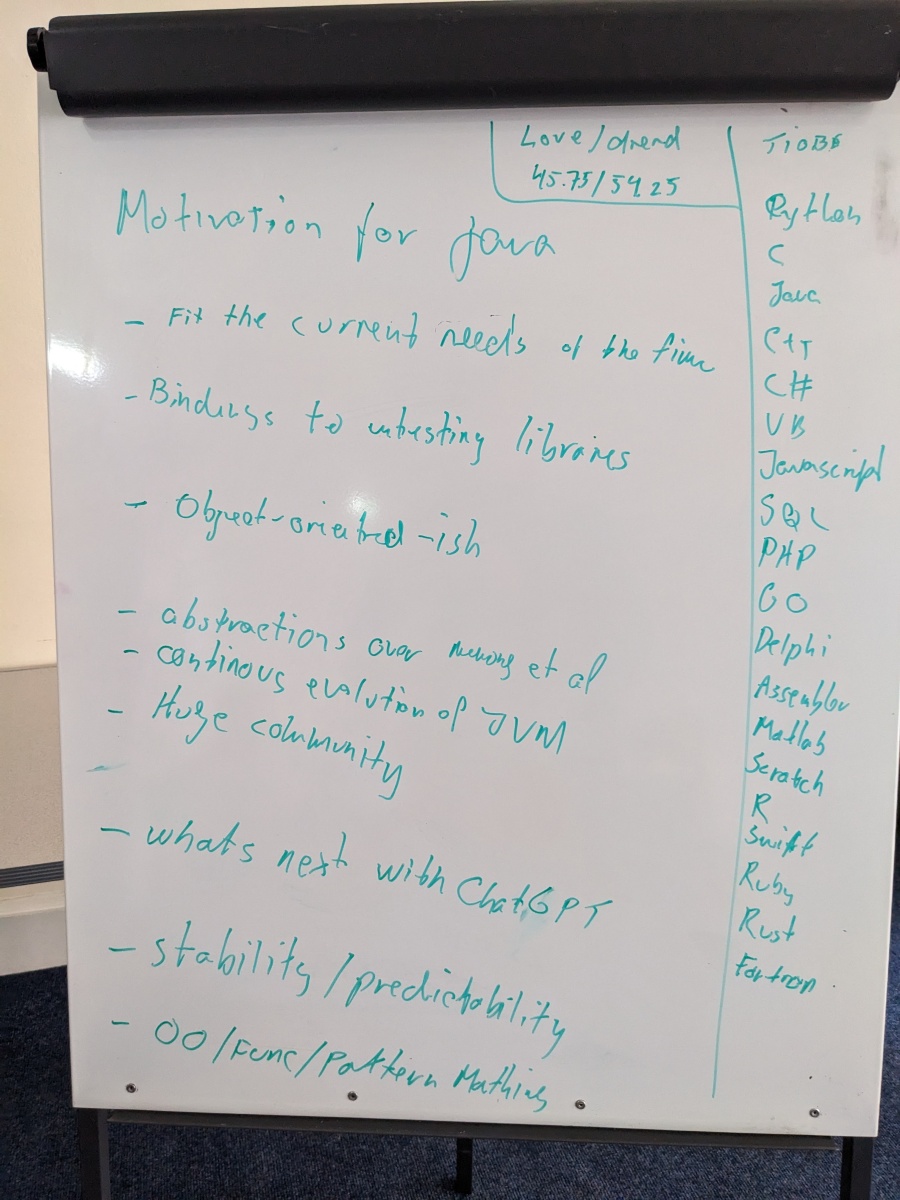 Love/dread
45.75/54.25
Motivation for Java
- Fit the current needs of the time
- Bindings to intresting libraries
- Object-oriented-ish
- abstractions over memory et al
- continous evolution of JVM
- Huge community
-
- whats next with ChatGPT
- stability/predictability
- OO/Func/Pattern Mathing
TIOBE
Python
C
Java
C++
C#
VB
Javascript
SQL
PHP
GO
Delphi
Assembler
Matlab
Scratch
R
Swift
Ruby
Rust
Fortran